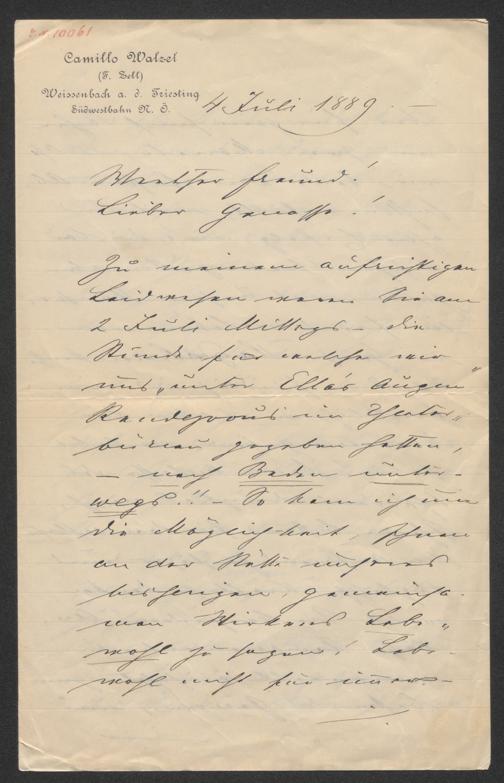 Camillo Walzel
(F. Zell)
Weissenbach a. d. Triesting
Südwestbahn N. Ö.
4 Juli 1889. —
Werther Freund!
Lieber Genosse!
Zu meinem aufrichtigen
Leidwesen waren Sie am
2 Juli Mittags – die
Stunde für welche wir
uns „unter Ella's Augen"
Rendezvous im Theater„
büreau gegeben hatten,
– nach Baden unter-
wegs!! – So kam ich um
die Möglichkeit, Ihnen
an der Stätte unseres
bisherigen gemeinsa-
men Wirkens Lebe„
wohl zu sagen! Lebe-
wohl nicht für immer –